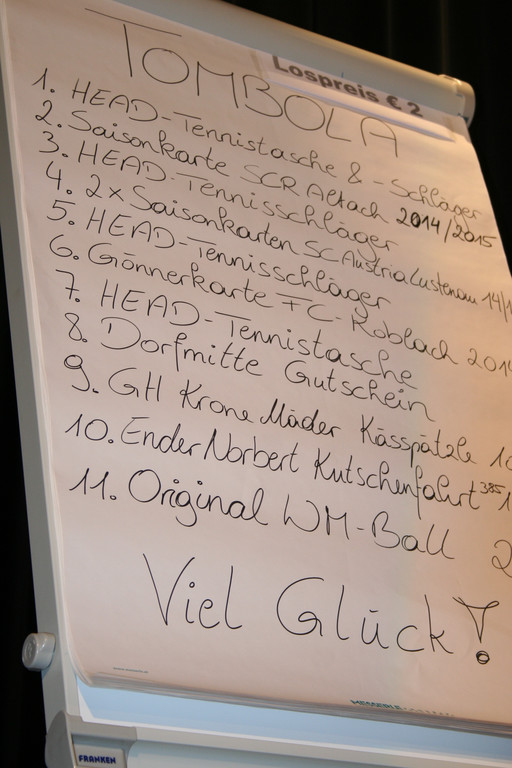 TOMBOLA
Lospreis € 2
1. HEAD-Tennistasche & -Schläger
2. Saisonkarte SCR Altach 2014/2015
3. HEAD-Tennisschläger
4. 2x Saisonkarten SC Austria Lustenau 14/1
5. HEAD-Tennisschläger
6. Gönnerkarte FC-Koblach 201
7. HEAD-Tennistasche
8. Dorfmitte Gutschein
9. GH Krone Mäder Kässpätzle 10
10. Ender Norbert Kutschenfahrt 385 1
11. Original WM-Ball 2
Viel Glück!
FRANKEN